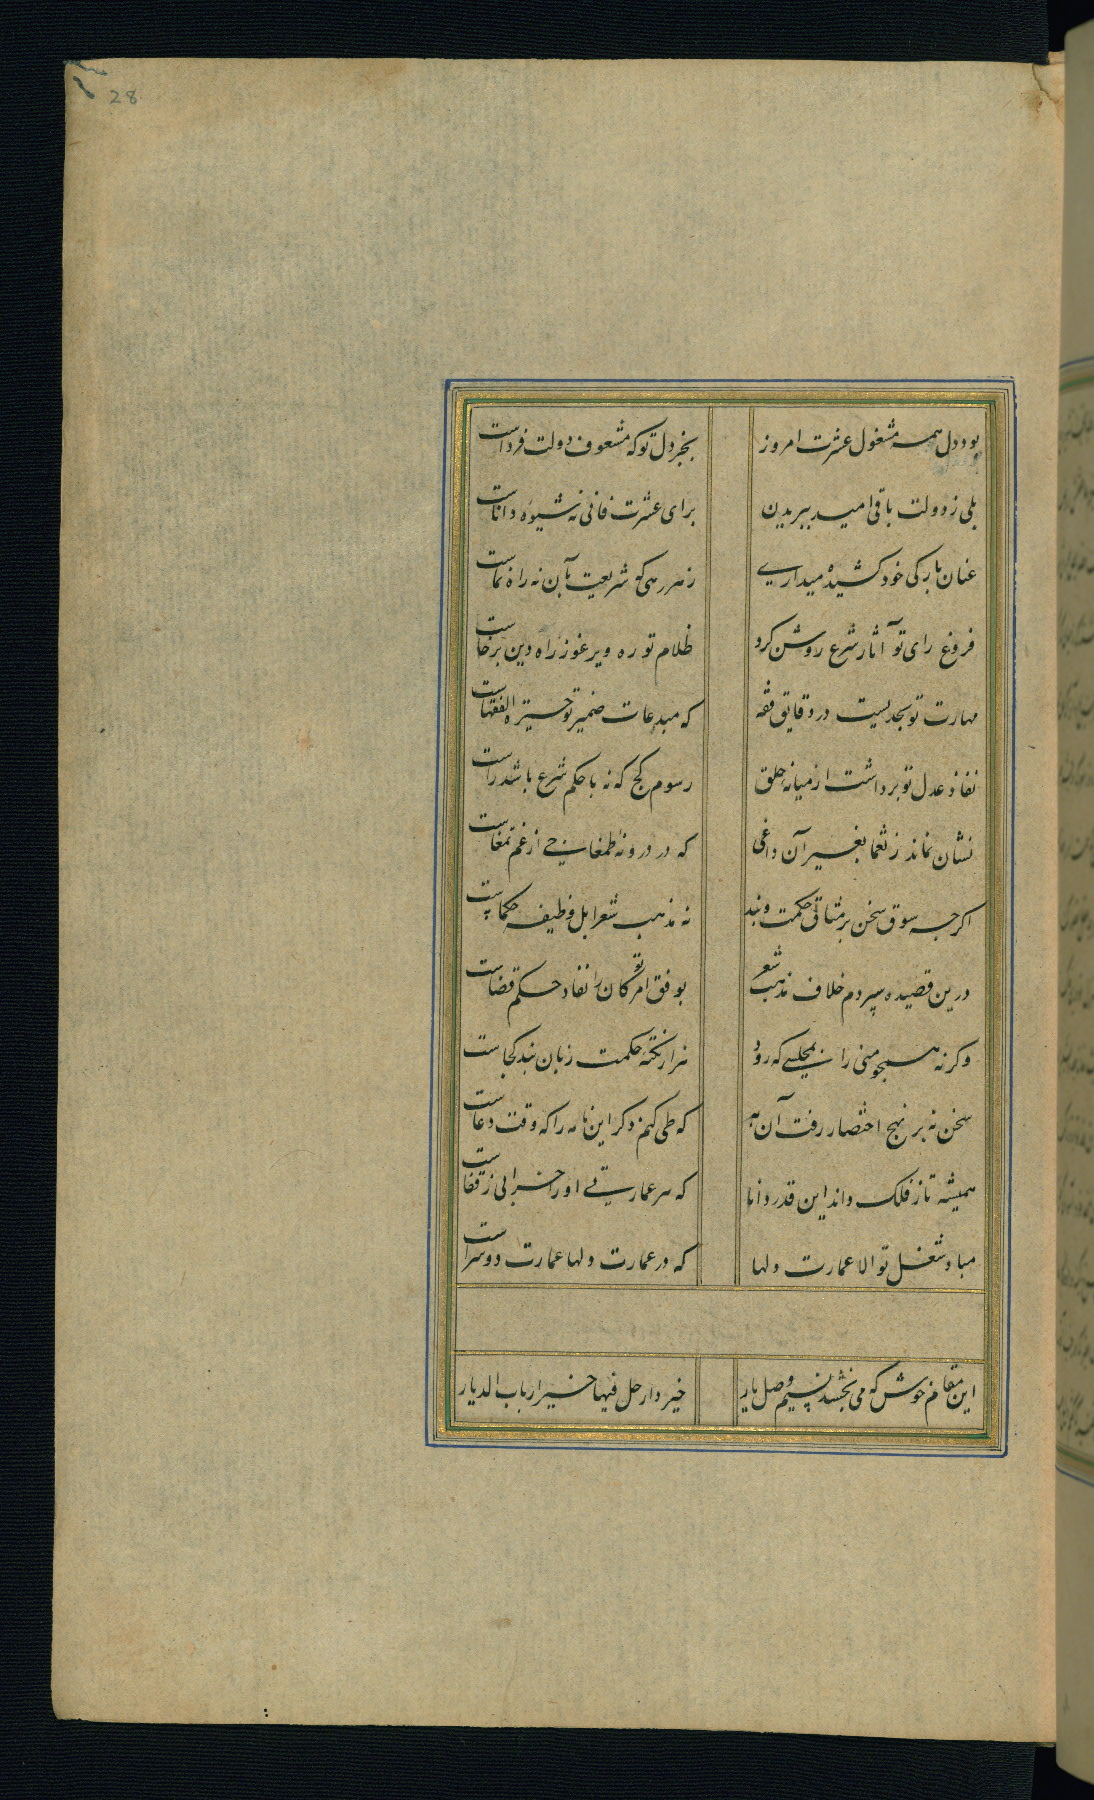 28
بود دل همه مشغول عشرت امروز بجز دل تو که مشعوف دولت فرداست
بلی ز دولت باقی امید ببریدن برای عشرت فانی نه شیوه داناست
عنان بارکی خود کشیده میداری ز هر رهی که شریعت بآن نه راه نماست
فروغ رای تو آثار شرع روشن کرد ظلام توره ویرغو ز راه دین برخاست
مهارت تو بحدیست در دقایق فقه که مبدعات ضمیر تو حیرة الفقهاست
نفاذ عدل تو برداشت از میانه خلق رسوم کج که نه با حکم شرع باشد راست
نشان نماند ز تمغا بغیر آن داغی که در درونه طمغاجی از غم تمغاست
اکرچه سوق سخن بر مشاق حکمت و پند نه مذهب شعرا بل وظیفه حکماست
درین قصیده سپردم خلاف مذهب شعر بوفق امر تو کان را نفاد حکم قضاست
وکرنه همچو منی را بمجلسی که رود هزار نکته حکمت زبان پند کجاست
سخن نه بر نهج اختصار رفت آن به که طی کنم دکر این نامه را که وقت دعاست
همیشه تا ز فلک داند این قدر دانا که هر عمارتی او را خرابی ز قفاست
مباد شغل تو الا عمارت دلها که در عمارت دلها عمارت دو سراست
این مقام خوش که می بخشد نسیم وصل یار خیر دار حل فیها خیر ارباب الدیار